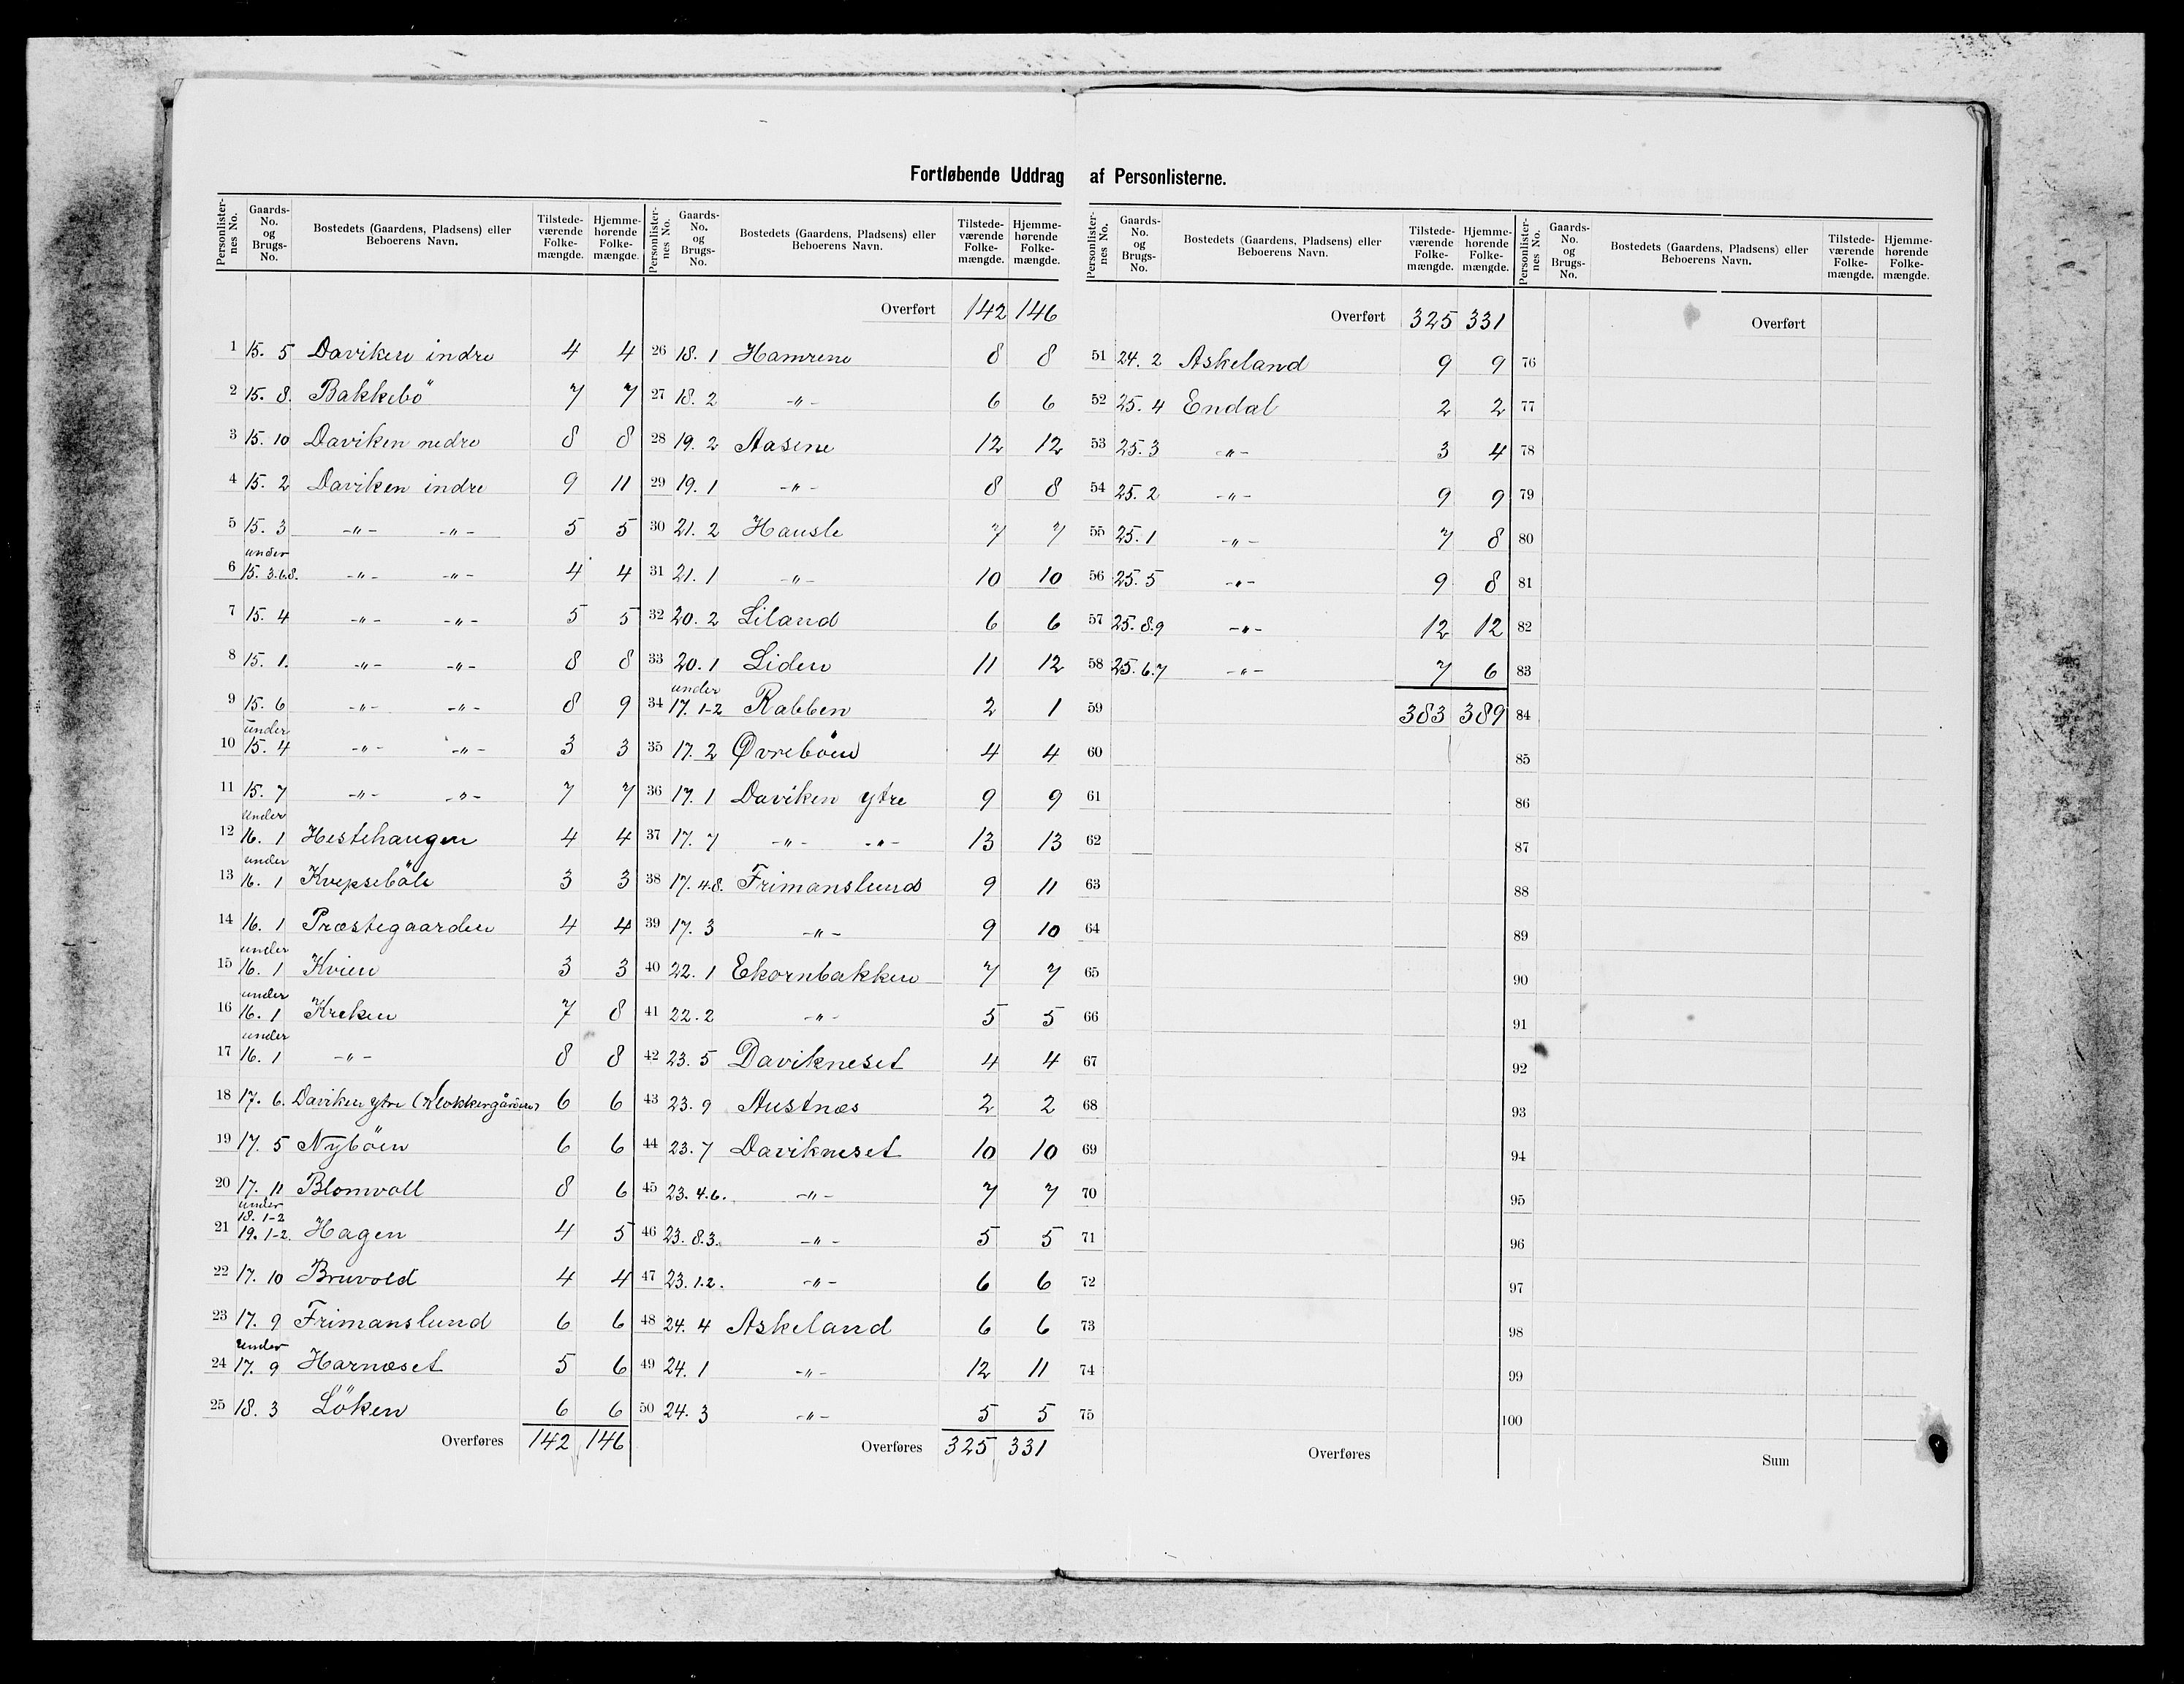 Fortløbende Uddrag af Personlisterne.
Personlister-nes No. Gaards-No. og Brugs-No. Bostedets (Gaardens, Pladsens) eller Beboerens Navn. Tilstede-værende Folke-mængde. Hjemme-hørende Folke-mængde.
1 15. 5 Daviken indre 4 4
2 15. 8. Bakkebö 7 7
3 15. 10 Daviken nedre 8 8
4 15. 2 Daviken indre 9 11
5 15. 3 -"- -"- 5 5
6 under 15. 3.6.8. -"- -"- 4 4
7 15. 4 -"- -"- 5 5
8 15. 1. -"- -"- 8 8
9 15. 6 -"- -"- 8 9
10 under 15. 4 -"- -"- 3 3
11 15. 7 -"- -"- 7 7
12 under 16. 1 Hestehaugen 4 4
13 under 16. 1 Kvepseböle 3 3
14 16. 1 Præstegaarden 4 4
15 under 16. 1 Kvien 3 3
16 under 16. 1 Kreken 7 8
17 under 16. 1 -"- 8 8
18 17. 6. Daviken ytre (Klokkergården) 6 6
19 17. 5 Nyböen 6 6
20 17. 11 Blomvoll 8 6
21 under 18. 1-2 19. 1-2. Hagen 4 5
22 17. 10 Bruvold 4 4
23 17. 9 Frimanslund 6 6
24 under 17. 9 Harnæset 5 6
25 18. 3 Löken 6 6
Overføres 142 146
Personlister-nes No. Gaards-No. og Brugs-No. Bostedets (Gaardens, Pladsens) eller Beboerens Navn. Tilstede-værende Folke-mængde. Hjemme-hørende Folke-mængde.
Overført 142 146
26 18. 1 Hamrene 8 8
27 18. 2 -"- 6 6
28 19. 2 Aasene 12 12
29 19. 1 -"- 8 8
30 21. 2 Hausle 7 7
31 21. 1 -"- 10 10
32 20. 2 Liland 6 6
33 20. 1 Liden 11 12
34 under 17. 1-2 Rabben 2 1
35 17. 2 Øvreböen 4 4
36 17. 1 Daviken ytre 9 9
37 17. 7 -"- -"- 13 13
38 17. 4.8. Frimanslund 9 11
39 17. 3 -"- 9 10
40 22. 1 Ekornbakken 7 7
41 22. 2 -"- 5 5
42 23. 5 Davikneset 4 4
43 23. 9 Austnæs 2 2
44 23. 7 Davikneset 10 10
45 23. 4.6. -"- 7 7
46 23. 8.3. -"- 5 5
47 23. 1.2. -"- 6 6
48 24. 4 Askeland 6 6
49 24. 1 -"- 12 11
50 24. 3 -"- 5 5
Overføres 325 331
Personlister-nes No. Gaards-No. og Brugs-No. Bostedets (Gaardens, Pladsens) eller Beboerens Navn. Tilstede-værende Folke-mængde. Hjemme-hørende Folke-mængde.
Overført 325 331
51 24. 2 Askeland 9 9
52 25. 4 Endal 2 2
53 25. 3 -"- 3 4
54 25. 2 -"- 9 9
55 25. 1 -"- 7 8
56 25. 5 -"- 9 8
57 25. 8.9 -"- 12 12
58 25. 6.7 -"- 7 6
59 383 389
60
61
62
63
64
65
66
67
68
69
70
71
72
73
74
75
Overføres
Personlister-nes No. Gaards-No. og Brugs-No. Bostedets (Gaardens, Pladsens) eller Beboerens Navn. Tilstede-værende Folke-mængde. Hjemme-hørende Folke-mængde.
Overført
76
77
78
79
80
81
82
83
84
85
86
87
88
89
90
91
92
93
94
95
96
97
98
99
100
Sum